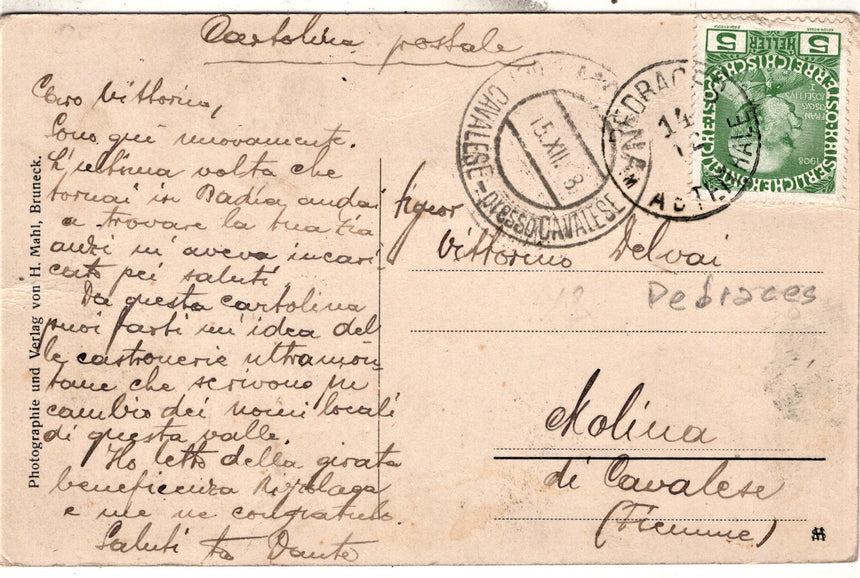 Cartolina postale
Caro Vittorino,
Sono quì nuovamente.
L'ultima volta che
tornai in Badia andai
a trovare la tua zia
anzi m'aveva incari
cato pei saluti
Da questa cartolina
puoi farti un'idea del
le castronerie ultramon-
tane che scrivono in
cambio dei nomi locali
di questa valle.
Ho letto della girata
beneficenza
e me ne congratulo.
Saluti tuo Dante
Signor
Vittorino Delvai
Pedraces
Molina
di Cavalese
(Fiemme)
Photographie und Verlag von H. Mahl, Bruneck.
CAVALESE - presso CAVALESE
15.XII. 8
PEDRACES
14
12
ABTEITHALE
5 HELLER 5
1908